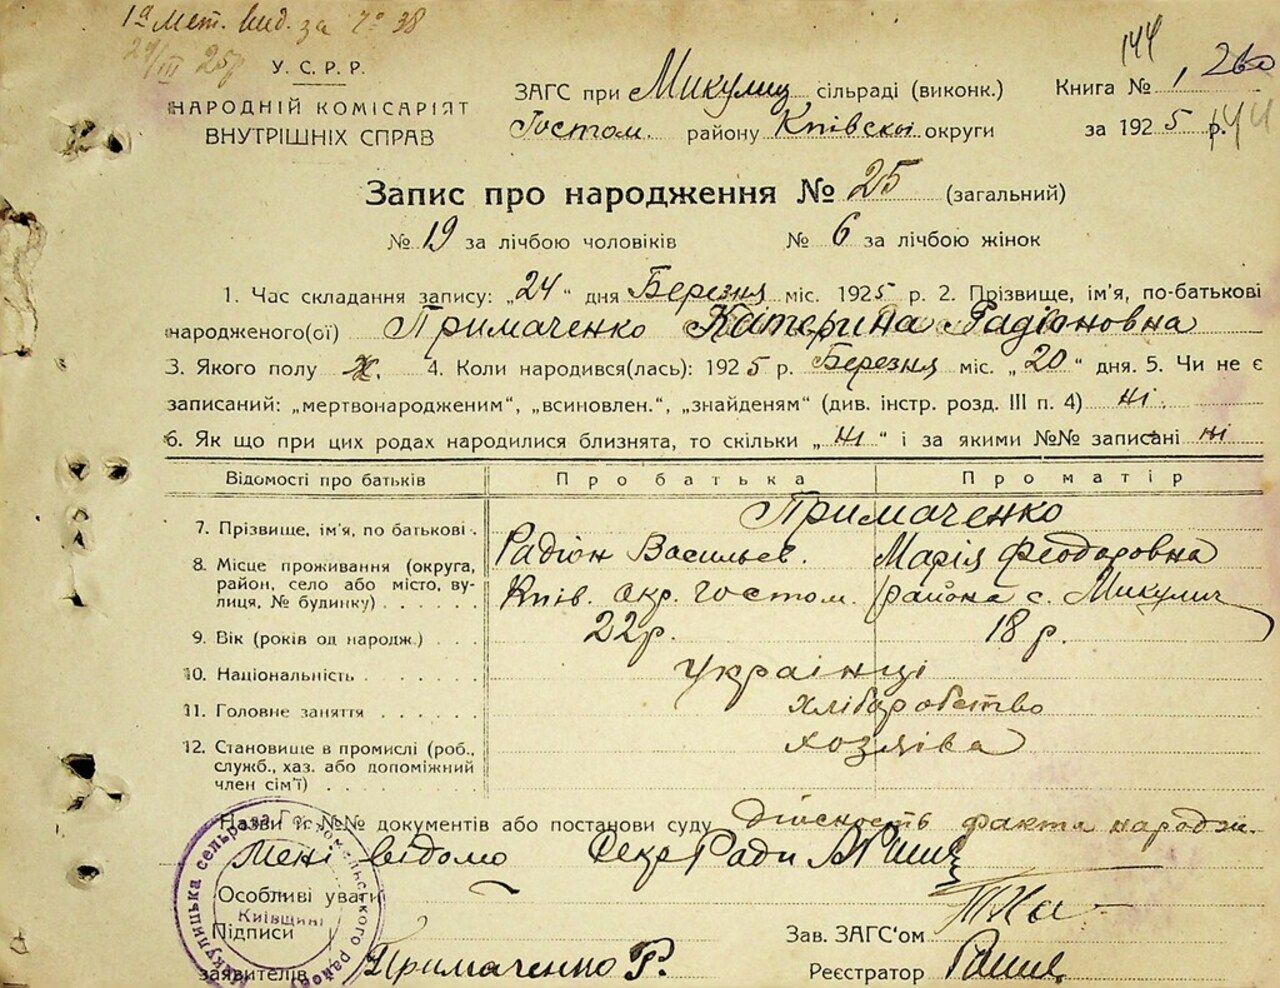 1а Мет. вид. за № 38
29/III 25р
У. С. Р. Р.
НАРОДНІЙ КОМІСАРІЯТ
ВНУТРІШНІХ СПРАВ
ЗАГС при Микулиц. сільраді (виконк.)
Гостом. району Київскої округи
144
Книга № 1, 260
за 1925 р. 144
Запис про народження № 25 (загальний)
№ 19 за лічбою чоловіків № 6 за лічбою жінок
1. Час складання запису: „24“ дня Березня міс. 1925 р. 2. Прізвище, ім'я, по-батькові
народженого(ої) Примаченко Катерина Радіоновна
3. Якого полу ж. 4. Коли народився(лась): 1925 р. Березня міс. „20“ дня. 5. Чи не є
записаний: „мертвонародженим“, „всиновлен.“, „знайденям“ (див. інстр. розд. III п. 4) ні.
6. Як що при цих родах народилися близнята, то скільки „ні“ і за якими №№ записані ні
Відомості про батьків Про батька Про матір
7. Прізвище, ім'я, по батькові. Примаченко
Радіон Васильев. Марія Феодоровна
8. Місце проживання (округа,
район, село або місто, ву-
лиця, № будинку) Київ. окр. Гостом. района с. Микулич
9. Вік (років од народж.) 22р. 18 р.
10. Національність українці
11. Головне заняття хліборобство
12. Становище в промислі (роб.,
служб., хаз. або допоміжний
член сім'ї) хозяіва
Назви й №№ документів або постанови суду дійсность факта народж.
мені відомо Секр Ради
Особливі уваги
Підписи
заявителів Примаченко Р.
Зав. ЗАГС'ом
Реєстратор
Микулицька сельрада Гостомельського району
Київщини